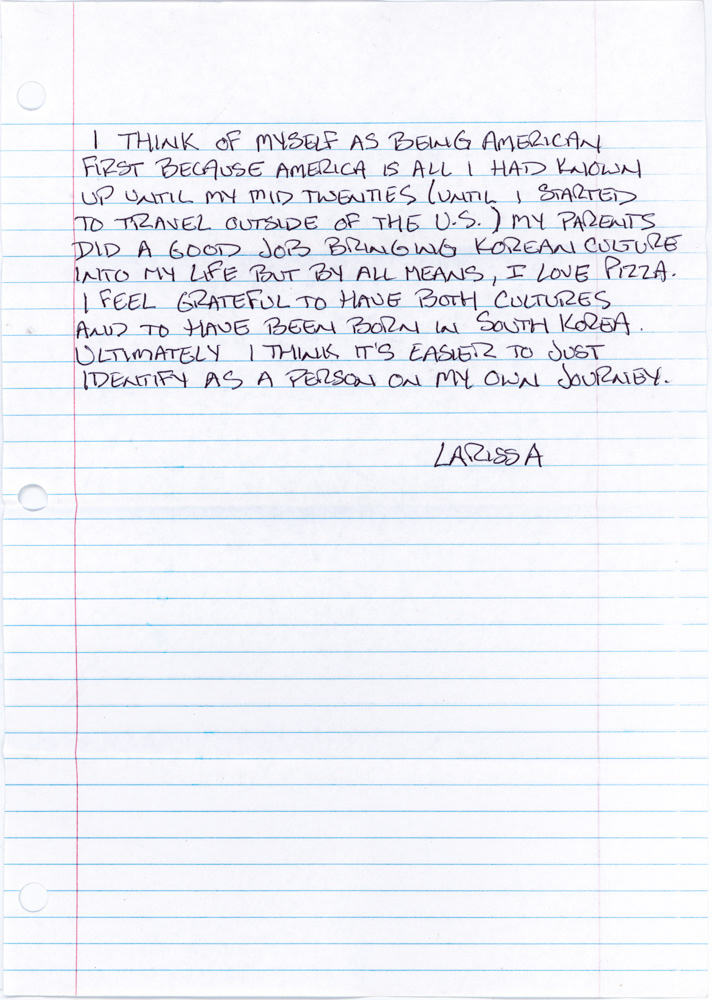 I THINK OF MYSELF AS BEING AMERICAN
FIRST BECAUSE AMERICA IS ALL I HAD KNOWN
UP UNTIL MY MID TWENTIES (UNTIL I STARTED
TO TRAVEL OUTSIDE OF THE U.S.) MY PARENTS
DID A GOOD JOB BRINGING KOREAN CULTURE
INTO MY LIFE BUT BY ALL MEANS, I LOVE PIZZA.
I FEEL GRATEFUL TO HAVE BOTH CULTURES
AND TO HAVE BEEN BORN IN SOUTH KOREA.
ULTIMATELY I THINK IT'S EASIER TO JUST
IDENTIFY AS A PERSON ON MY OWN JOURNEY.
LARISSA